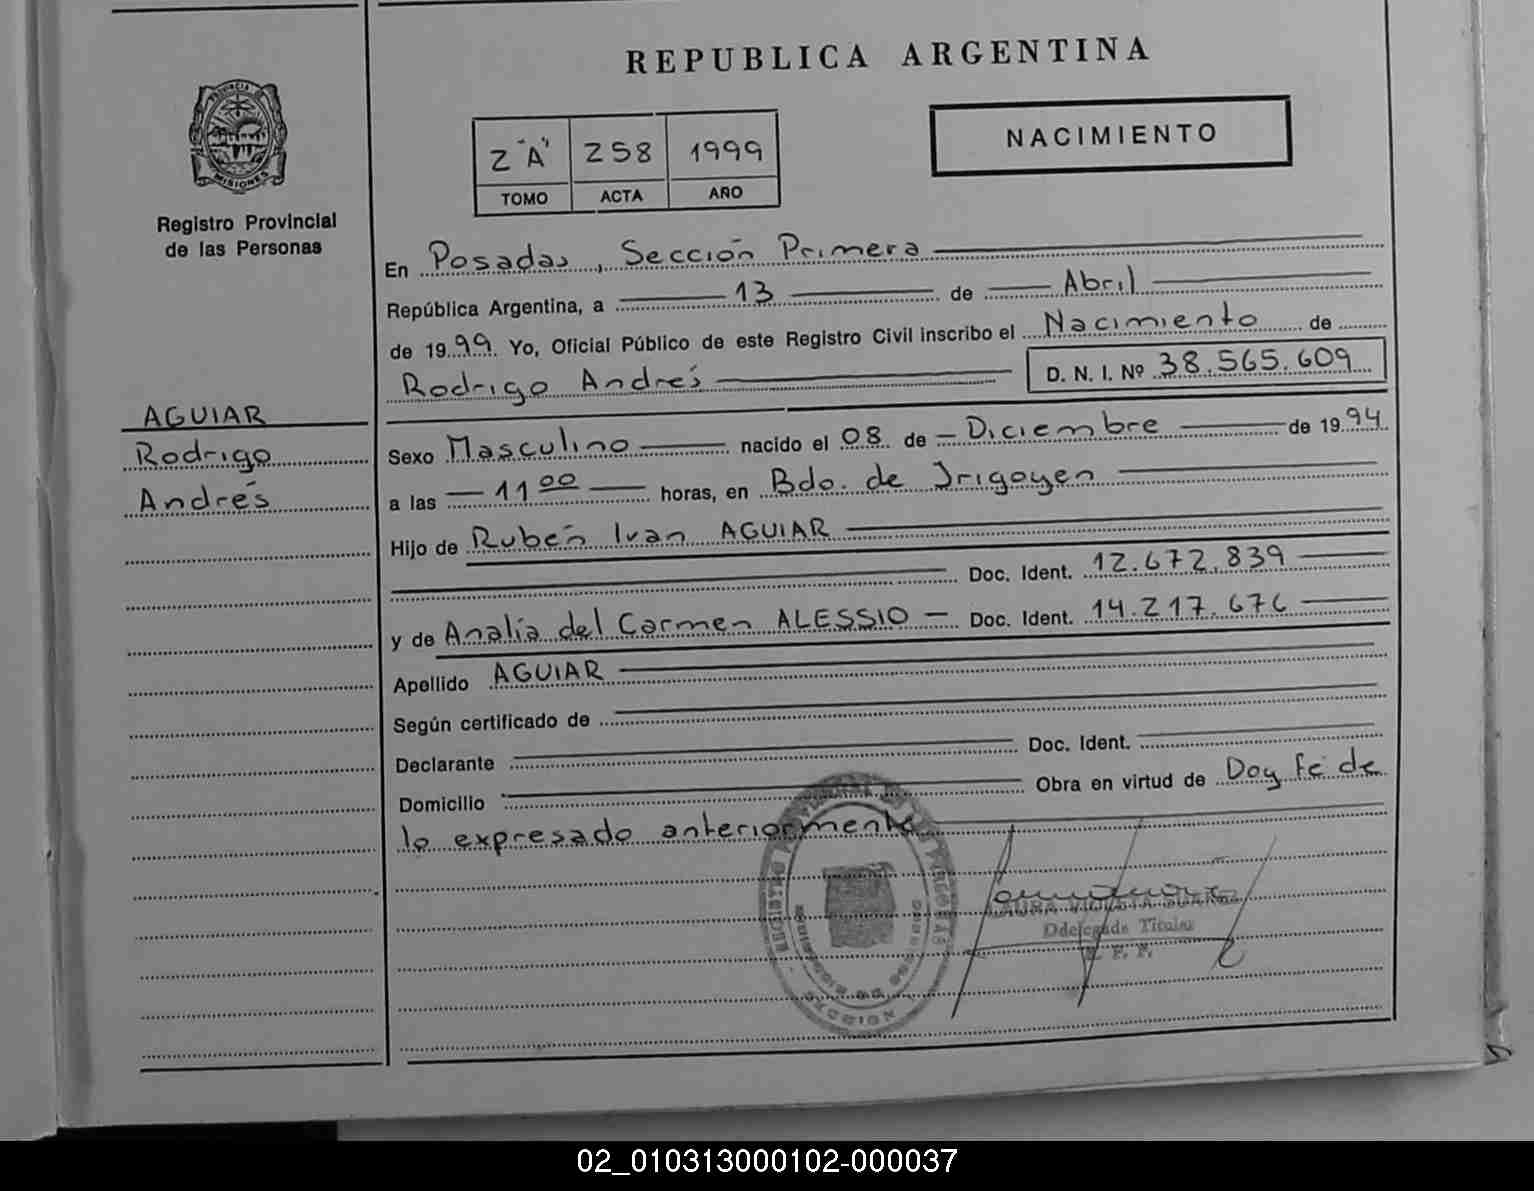 REPUBLICA ARGENTINA
PROVINCIA DE
MISIONES
Registro Provincial
de las Personas
NACIMIENTO
2 "A" 258 1999
TOMO ACTA AÑO
En Posadas, Sección Primera
República Argentina, a 13 de Abril
de 1999 Yo, Oficial Público de este Registro Civil inscribo el Nacimiento de
Rodrigo Andrés D. N. I. Nº 38.565.609
AGUIAR
Rodrigo
Andrés
Sexo Masculino nacido el 08 de Diciembre de 1994
a las 11 00 horas, en Bdo. de Irigoyen
Hijo de Rubén Ivan AGUIAR
Doc. Ident. 12.672.839
y de Analía del Carmen ALESSIO Doc. Ident. 14.217.676
Apellido AGUIAR
Según certificado de
Declarante Doc. Ident.
Domicilio Obra en virtud de Doy fé de
lo expresado anteriormente
LAURA SUAREZ
Odelegada Titular
R. P. P.
02_010313000102-000037